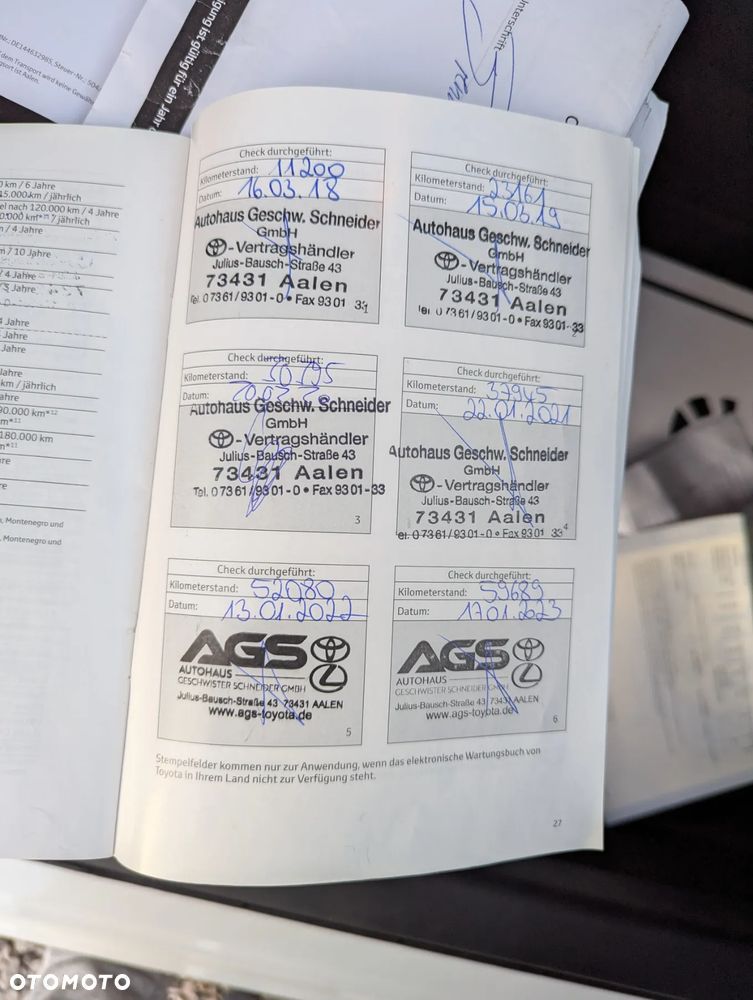 Nr.: DE144632985, Steuer-Nr.: 504
dem Transport wird keine Gewähr
gsort ist Aalen.
gung ist gültig für ein Jahr
Unterschrift
0 km / 6 Jahre
15.000 km / jährlich
el nach 120.000 km / 4 Jahre
/ jährlich
m / 4 Jahre
m / 10 Jahre
/ 4 Jahre
Jahre
4 Jahre
Jahre
Jahre
ahre
km / jährlich
ahre
90.000 km*¹²
m*¹¹
180.000 km
m*¹¹
re
o, Montenegro und
o, Montenegro und
Check durchgeführt:
Kilometerstand: 11200
Datum: 16.03.18
Autohaus Geschw. Schneider
GmbH
-Vertragshändler
Julius-Bausch-Straße 43
73431 Aalen
Tel. 0 73 61 / 93 01 - 0 • Fax 93 01 33
1
Check durchgeführt:
Kilometerstand: 23161
Datum: 15.03.19
Autohaus Geschw. Schneider
GmbH
-Vertragshändler
Julius-Bausch-Straße 43
73431 Aalen
Tel. 0 73 61 / 93 01 - 0 • Fax 93 01 - 33
2
Check durchgeführt:
Kilometerstand:
Datum:
Autohaus Geschw. Schneider
GmbH
-Vertragshändler
Julius-Bausch-Straße 43
73431 Aalen
Tel. 0 73 61 / 93 01 - 0 • Fax 93 01 - 33
3
Check durchgeführt:
Kilometerstand: 37945
Datum: 22.01.2021
Autohaus Geschw. Schneider
GmbH
-Vertragshändler
Julius-Bausch-Straße 43
73431 Aalen
Tel. 0 73 61 / 93 01 - 0 • Fax 93 01 33
4
Check durchgeführt:
Kilometerstand: 52080
Datum: 13.01.2022
AGS
AUTOHAUS
GESCHWISTER SCHNEIDER GMBH
Julius-Bausch-Straße 43 73431 AALEN
www.ags-toyota.de
5
Check durchgeführt:
Kilometerstand: 59689
Datum: 17.01.2023
AGS
AUTOHAUS
GESCHWISTER SCHNEIDER GMBH
Julius-Bausch-Straße 43 73431 AALEN
www.ags-toyota.de
6
Stempelfelder kommen nur zur Anwendung, wenn das elektronische Wartungsbuch von
Toyota in Ihrem Land nicht zur Verfügung steht.
27
OTOMOTO